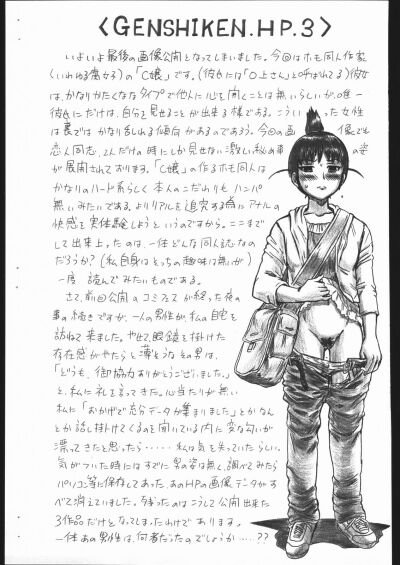 ＜GENSHIKEN.HP.3＞
いよいよ最後の画像公開となってしまいました。今回はホモ同人作家
(いわゆる腐女子)の「C嬢」です。(彼氏には「〇上さん」と呼ばれてる)彼女
は、かなりかたくななタイプで他人に心を開くことは無いらしいが、唯一
彼氏にだけは、自分を見せることが出来る様である。こういった女性
は裏ではかなり乱れる傾向があるのであろう。今回の画像でも
恋人同志、2人だけの時にしか見せない激しい秘め事の姿
が展開されております。「C嬢」の作るホモ同人は
かなりのハード系らしく本人のこだわりもハンパ
無いみたいである。よりリアルを追究する為にアナルの
快感を実体験しようというのですから。ここまで
して出来上ったのは、一体どんな同人誌なの
だろうか?(私自身はそっちの趣味は無いが)
一度 読んでみたいものである。
さて、前回公開のコミフェスが終った夜の
事の続きですが、一人の男性が、私の自宅を
訪ねて来ました。やせて、眼鏡を掛けた
存在感がやたらと薄そうなその男は、
「どうも、御協力ありがとうございました。」
と、私に礼を言ってきた。心当たりが無い
私に「おかげで充分データが集まりました」とかなん
とか話し掛けてくるのを聞いている内に変な匂いが
漂ってきたと思ったら・・・・・私は気を失っていたらしい。
気がついた時にはすでに男の姿は無く、調べてみたら
パソコン等に保存してあった、あのHPの画像データがす
べて消えていました。残ったのはこうして公開出来た
3作品だけとなってしまったわけであります。
一体あの男性は、何者だったのでしょうか・・・・??